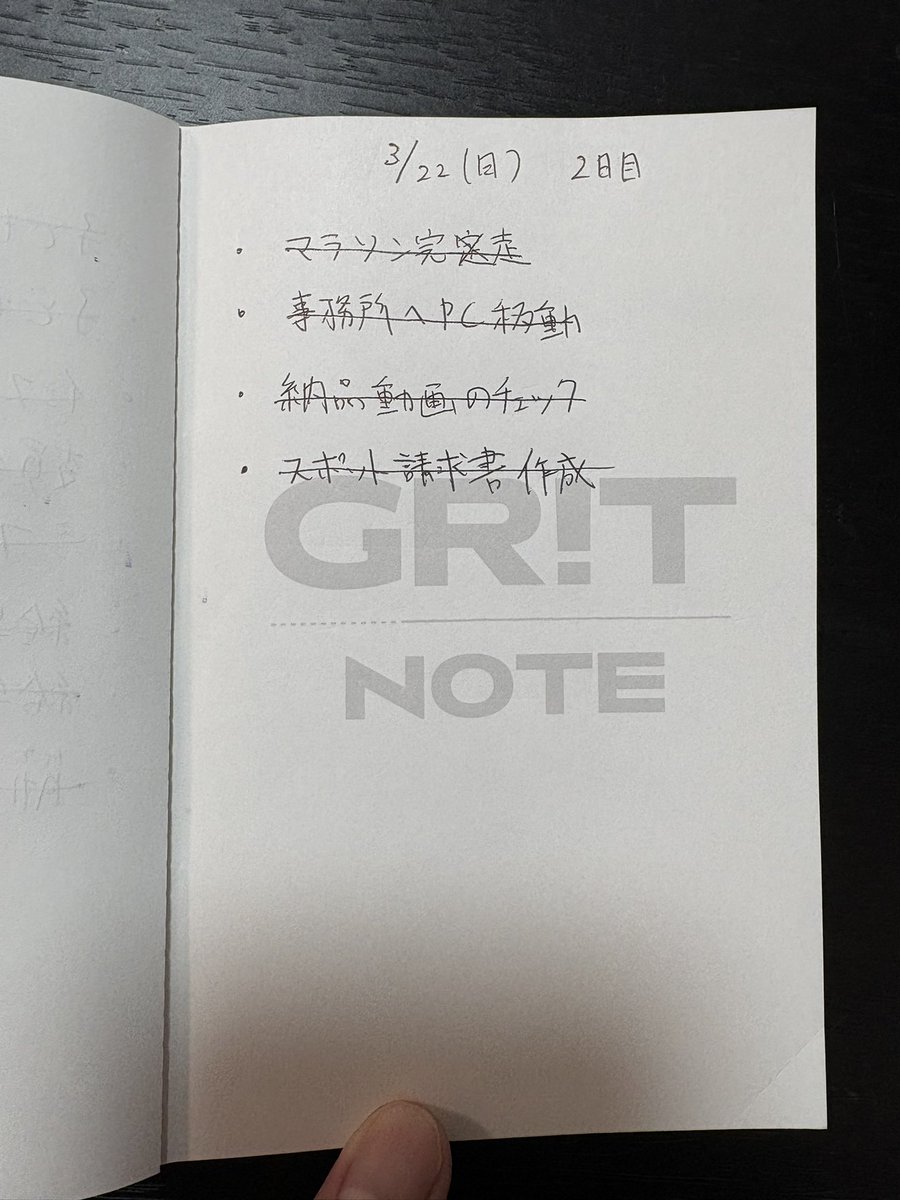 3/22(日) 2日目
・マラソン完走
・事務所へPC移動
・納品動画のチェック
・スポット請求書作成
GR!T
NOTE